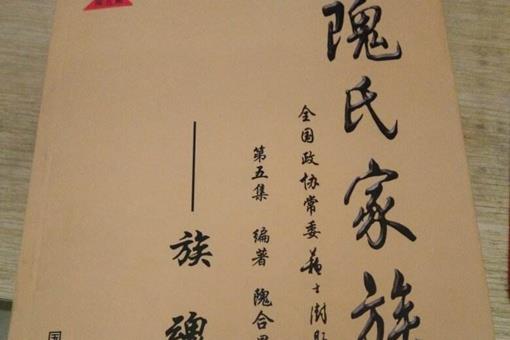 隗氏家族
全国政协常委
第五集 编著 隗合
——族魂
国